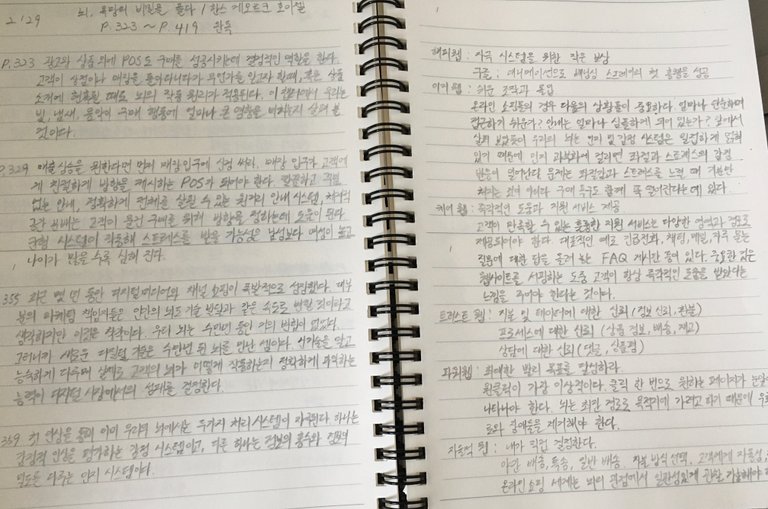 2/29 뇌, 욕망의 비밀을 풀다 / 한스 게오르크 호이젤
P.323 ~ P.419 완독
P.323 광고와 상품 외에 POS도 구매를 성공시키는데 결정적인 역할을 한다.
고객이 상점이나 매장을 돌아다니다가 무언가를 인고자 할때, 혹은 상품
소개에 현혹될 때도 뇌의 작동 원리가 적용된다. 이 분야에서 우리는
빛, 냄새, 음악이 구매 행동에 얼마나 큰 영향을 미치는지 살펴 볼
것이다.
P.329 매출상승을 원한다면 먼저 매장입구에 신경 써라. 매장 입구는 고객에
게 친절하게 방향을 제시하는 POS가 되어야 한다. 깔끔하고 막힘
없는 안내, 정확하게 전체를 살필 수 있는 원거리 안내 시스템, 저마다의
공간 분배는 고객이 물건 구매를 위해 방향을 정하는데 도움이 된다.
균형 시스템이 작동해 스트레스를 받을 가능성은 남성보다 여성이 높고
나이가 많을 수록 심해 진다.
355 최근 몇 년 동안 디지털미디어와 채널 쇼핑이 폭발적으로 성장했다. 대부
분의 마케팅 책임자들은 인간의 뇌도 기술 발달과 같은 속도로 변할 것이라고
생각하지만 이것은 착각이다. 우리 뇌는 수만년 동안 거의 변함이 없었다.
그러니까 새로운 디지털 기술은 수만년 된 뇌를 만난 셈이다. 신기술을 알고
능숙하게 다루며 실제로 고객의 뇌가 어떻게 작동하는지 정확하게 파악하는
능력이 디지털 시장에서의 성패를 결정한다.
359 첫 인상을 통해 이미 우리의 뇌에서는 두가지 처리 시스템이 자극된다. 하나는
감정적 인상을 평가하는 감정 시스템이고, 다른 하나는 정보의 종류와 정보의
밀도를 다루는 인지 시스템이다.
해피웹 : 자극 시스템을 위한 작은 보상
구글 : 애니메이션으로 배낭식 스토리의 첫 비행을 성공
이지 웹 : 쉬운 조작과 몰입
온라인 쇼핑몰의 경우 다음의 상황들이 중요하다. 얼마나 단순하며
접근하기 쉬운가? 안내는 얼마나 심플하게 되어 있는가? 앞에서
살펴 보았듯이 우리의 뇌는 인지 및 감정 시스템은 밀접하게 얽혀
있기 때문에 인지 과부하에 걸리면 좌절과 스트레스의 감정
반응이 일어난다. 문제는 좌절감과 스트레스를 느낄 때 기분만
처지는 것이 아니라 구매 충동도 함께 뚝 떨어진다는데 있다.
케어 웹 : 즉각적인 도움과 지원 서비스 제공
고객이 만족할 수 있는 훌륭한 지원 서비스는 다양한 영역과 경로로
제공되어야 한다. 대표적인 예로 긴급전화, 채팅, 메일, 자주 묻는
질문에 대한 답을 올려 놓는 FAQ 게시판 등이 있다. 중요한 것은
웹사이트를 서핑하는 도중 고객이 항상 즉각적인 도움을 받았다는
느낌을 주어야 한다는 것이다.
트러스트 웹 : 지불 및 데이터에 대한 신뢰 (정보 신뢰, 환불)
프로세스에 대한 신뢰 (상품 정보, 배송, 재고)
상담에 대한 신뢰 (댓글, 상품평)
파워웹 : 최대한 빨리 목표를 달성하라
원클릭이 가장 이상적이다. 클릭 한 번으로 원하는 페이지가 눈앞에
나타나야 한다. 뇌는 최단 경로로 목적지에 가려고 하기 때문에 우회
로와 장애물을 제거해야 한다.
자율적 웹 : 내가 직접 결정한다.
야간 배송, 특송, 일반 배송 지불 방식 선택. 고객에게 자율성
온라인 쇼핑 세계는 뇌의 관점에서 일관성있게 관찰